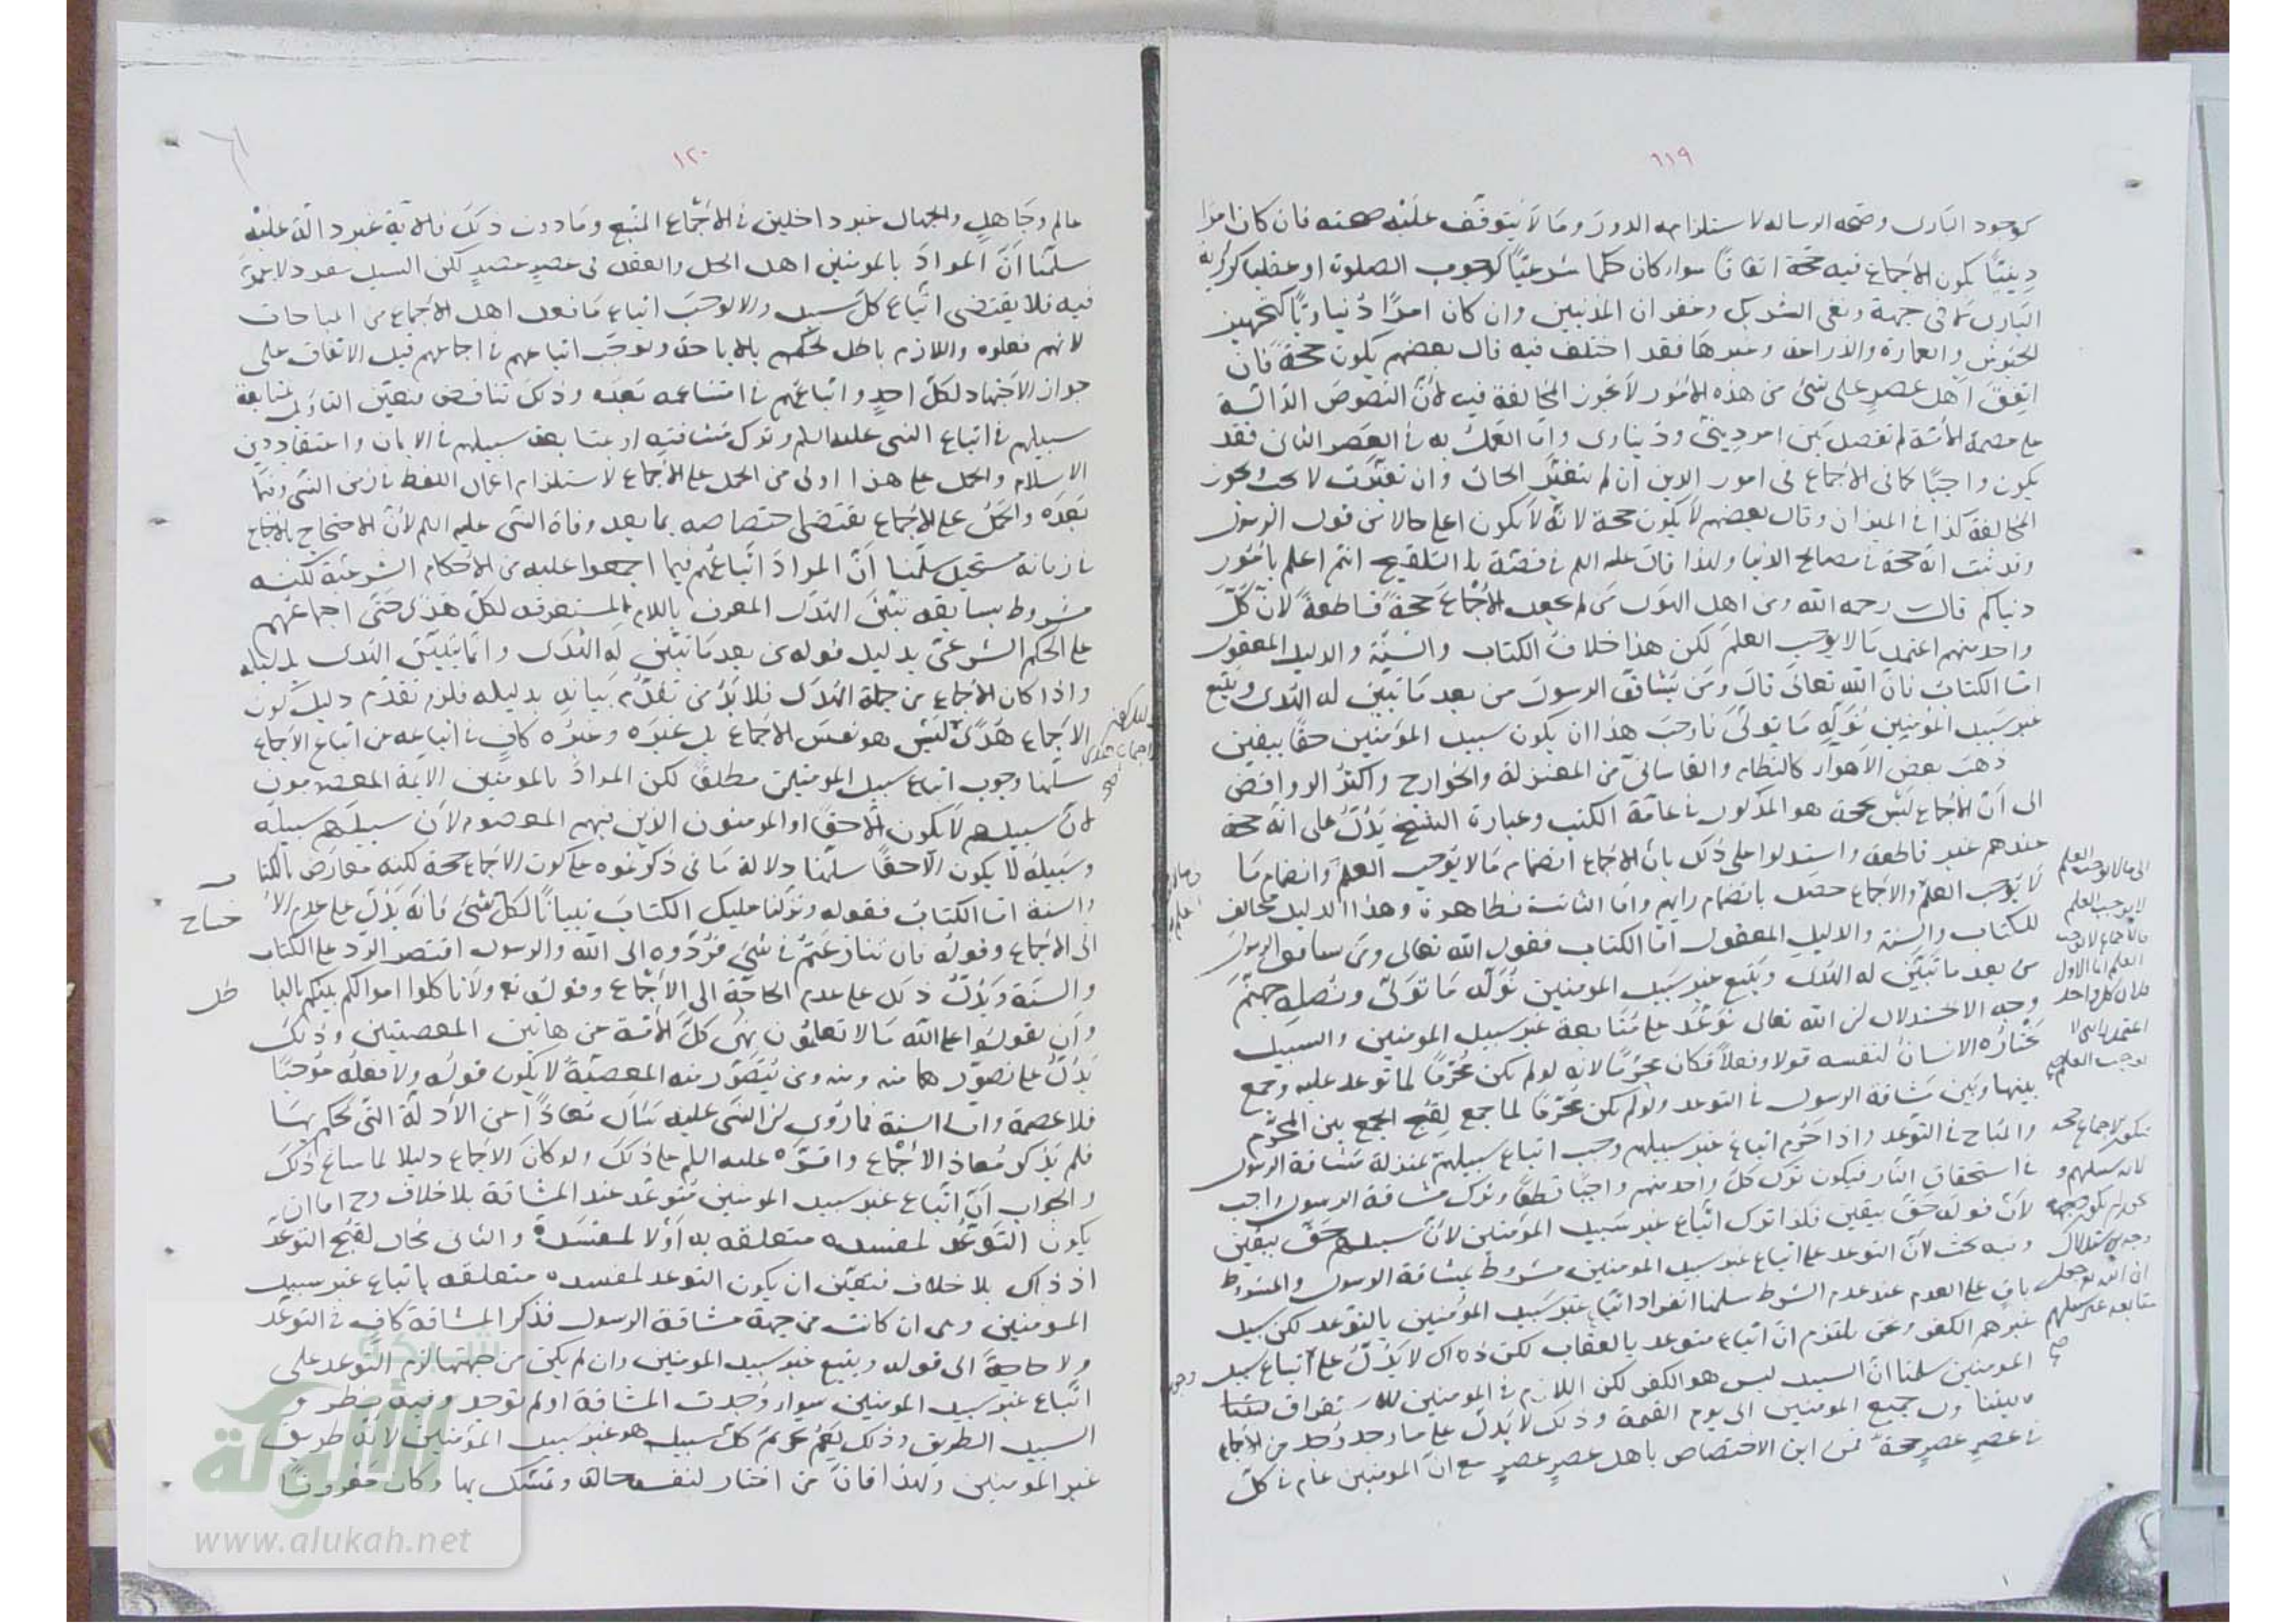 ٦١٩
كوجود البارى وصحة الرسالة لاستلزامه الدور وما لا يتوقف عليه صحته فان كان امرا
دينيّا يكون الاجماع فيه حجة اتفاقا سواء كان حكما شرعيّا كوجوب الصلوة او عقليا كرؤية
البارى لا فى جهة ونفى الشريك وغفران المذنبين وان كان امرًا دنياويّا كتجهيز
الجيوش والعمارة والزراعة وغيرها فقد اختلف فيه قال بعضهم يكون حجة فان
اتفق اهل عصر على شئ من هذه الامور لا يجوز المخالفة فيه لانّ النصوص الدالة
على عصمة الامّة لم تفصل بين امر دينىّ ودنياوى وامّا العمل به فى العصر الثانى فقد
يكون واجبًا كما فى الاجماع فى امور الدين ان لم يتغيّر الحال وان تغيّرت لا يجب ويجوز
المخالفة كذا فى الميزان وقال بعضهم لا يكون حجة لانّه لا يكون اعلى حالا من قول الرسول
وقد ثبت انه حجة فى مصالح الدنيا ولهذا قال عليه السلم فى قصّة التلقيح انتم اعلم بامور
دنياكم قال رحمه الله ومن اهل الهوى من لم يجعل الاجماع حجةً قاطعةً لانّ كلّ
واحد منهم اعتمد ما لا يوجب العلم لكن هذا خلاف الكتاب والسنّة والدليل المعقول
امّا الكتاب فانّ الله تعالى قال ومن يشاقق الرسول من بعد ما تبيّن له الهدى ويتّبع
غير سبيل المؤمنين نولّه ما تولّى فاوجب هذا ان يكون سبيل المؤمنين حقّا بيقين
ذهب بعض الاهواء كالنظام والقاسانى من المعتزلة والخوارج واكثر الروافض
الى انّ الاجماع ليس بحجة هو المذكور فى عامّة الكتب وعبارة الشيخ يدلّ على انّه حجة
عندهم غير قاطعة واستدلوا على ذلك بان الاجماع انضمام ما لا يوجب العلم وانضمام ما
لا يوجب العلم والاجماع حصل بانضمام رايهم وامّا الثانية فظاهرة وهذا الدليل مخالف
للكتاب والسنة والدليل المعقول امّا الكتاب فقول الله تعالى ومن يشاقق الرسول
من بعد ما تبيّن له الهدى ويتّبع غير سبيل المومنين نولّه ما تولّى ونصله جهنّم
وجه الاستدلال انّ الله تعالى توعّد على متابعة غير سبيل المومنين والسبيل
يختاره الانسان لنفسه قولا وفعلاً فكان محرّمًا لانّه لو لم يكن محرّمًا لما توعد عليه وجمع
بينها وبين مشاقة الرسول فى التوعد ولو لم يكن محرّمًا لما جمع لقبح الجمع بين المحرّم
والمباح فى التوعد واذا حرم اتباع غير سبيلهم وجب اتباع سبيلهم بمنزلة مشاقة الرسول
فى استحقاق النار فيكون ترك كلّ واحد منهم واجبًا قطعًا وترك مشاقة الرسول واجب
لانّ قوله حقّ بيقين فكذا ترك اتّباع غير سبيل المؤمنين لانّ سبيلهم حقّ بيقين
وفيه بحث لانّ التوعد على اتباع غير سبيل المومنين مشروط بمشاقة الرسول والمشروط
باق على العدم عند عدم الشرط سلمنا انفراد اتباع غير سبيل المؤمنين بالتوعد لكن سبيل
غيرهم الكفر ونحن نلتزم انّ اتباع متوعد بالعقاب لكن ذاك لا يدلّ على اتباع سبيل
المومنين سلمنا انّ السبيل ليس هو الكفر لكن اللازم فى المومنين للاستغراق
جميع المومنين الى يوم القيمة وذلك لا يدل على ما وجد من الاجماع
فى عصر عصر حجةً فمن اين الاختصاص باهل عصر عصر مع انّ المومنين عام فى كلّ
الى ما لا يوجب العلم
لا يوجب العلم
فالاجماع لا يوجب
العلم امّا الاول
فلان كل واحد
اعتمد ما لا
يوجب العلم صح
فيكون الاجماع حجة
لانه سبيلهم
وجه الاستدلال
ان الله توعد على
متابعة غير سبيلهم
صح
١٢٠
عالم وجاهل والجهال غير داخلين فى الاجماع المتّبع وما دون ذلك فالاية غير دالّة عليه
سلّمنا انّ المراد بالمومنين اهل الحل والعقد فى عصرٍ عصيرٍ لكن السبيل مفرد لا عموم
فيه فلا يقتضى اتّباع كلّ سبيل والا لوجب اتباع ما فعل اهل الاجماع من المباحات
لانهم فعلوه واللازم باطل لحكمهم بالاباحة ولوجب اتباعهم فى اجماعهم قبل الاتفاق على
جواز الاجتهاد لكلّ احدٍ واتباعهم فى امتناعه بعده وذلك تناقض فتعيّن التاويل بمتابعة
سبيلهم فى اتباع النبى عليه السلم وترك مشاقته او بمتابعة سبيلهم فى الايمان واعتقاد دين
الاسلام والحمل على هذا اولى من الحمل على الاجماع لاستلزامه اعمال اللفظ فى زمن النبىّ وفيما
بعده والحمل على الاجماع يقتضى اختصاصه بما بعد وفاة النبى عليه السلم لانّ الاحتجاج بالاجماع
فى زمانه مستحيل سلّمنا انّ المراد اتّباعهم فيما اجمعوا عليه من الاحكام الشرعيّة لكنه
مشروط بسابقة تبيّن الهدى المعرف باللام المستغرقة لكلّ هدى حتّى اجماعهم
على الحكم الشرعىّ بدليل قوله من بعد ما تبيّن له الهدى وانّما يتبيّن الهدى بدليله
واذا كان الاجماع من جملة الهدى فلا بدّ من تقدّم بيانه بدليله فلزم تقدّم دليل كون
الاجماع هدًى ليس هو نفس الاجماع بل غيره وغيره كافٍ فى اتباعه عن اتباع الاجماع
سلّمنا وجوب اتباع سبيل المومنين مطلقًا لكن المراد بالمومنين الايمة المعصومون
لانّ سبيلهم لا يكون الّا حقًا او المومنون الذين فيهم المعصوم لانّ سبيلهم سبيله
وسبيله لا يكون الّا حقًا سلّمنا دلالة ما فى ذكرتموه على كون الاجماع حجة لكنه معارض بالكتا
والسنة امّا الكتاب فقوله ونزّلنا عليك الكتاب تبيانًا لكل شئ فانّه يدلّ على عدم الا
حتياج
الى الاجماع وقوله فان تنازعتم فى شئ فردّوه الى الله والرسول اقتصر الرد على الكتاب
والسنّة ويدلّ ذلك على عدم الحاجة الى الاجماع وقوله تع ولا تاكلوا اموالكم بينكم بالبا
طل
وأن تقولوا على الله ما لا تعلمون نهى كلّ الامّة عن هاتين المعصيتين وذلك
يدلّ على تصوّرهما منه ومن يتصوّر منه المعصيّة لا يكون قوله ولا فعله موجبًا
فلا عصمة وامّا السنة فما روى انّ النبى عليه سأل معاذًا عن الأدلّة التى يحكم بها
فلم يذكر معاذ الاجماع واقرّه عليه السلم على ذلك ولو كان الاجماع دليلا لما ساغ ذلك
والجواب انّ اتّباع غير سبيل المومنين متوعّد عند المشاقة بلا خلاف وح اما ان
يكون التوعّد لمفسدة متعلقة به أو لا لمفسدة والثانى محال لقبح التوعّد
اذ ذاك بلا خلاف فتعيّن ان يكون التوعد لمفسدة متعلقة باتباع غير سبيل
المومنين وهى ان كانت من جهة مشاقة الرسول فذكر المشاقة كافٍ فى التوعّد
ولا حاجة الى قوله ويتبع غير سبيل المومنين وان لم يكن من جهتها لزم التوعد على
اتّباع غير سبيل المومنين سواء وُجدت المشاقة او لم توجد وفيه نظر و
السبيل الطريق وذلك يعمّ كلّ سبيل هو غير سبيل المؤمنين لانّه طريق
غير المومنين ولهذا فانّ من اختار لنفسه حالة وتمسّك بها وكان معروفًا
شبكة
الألوكة
www.alukah.net